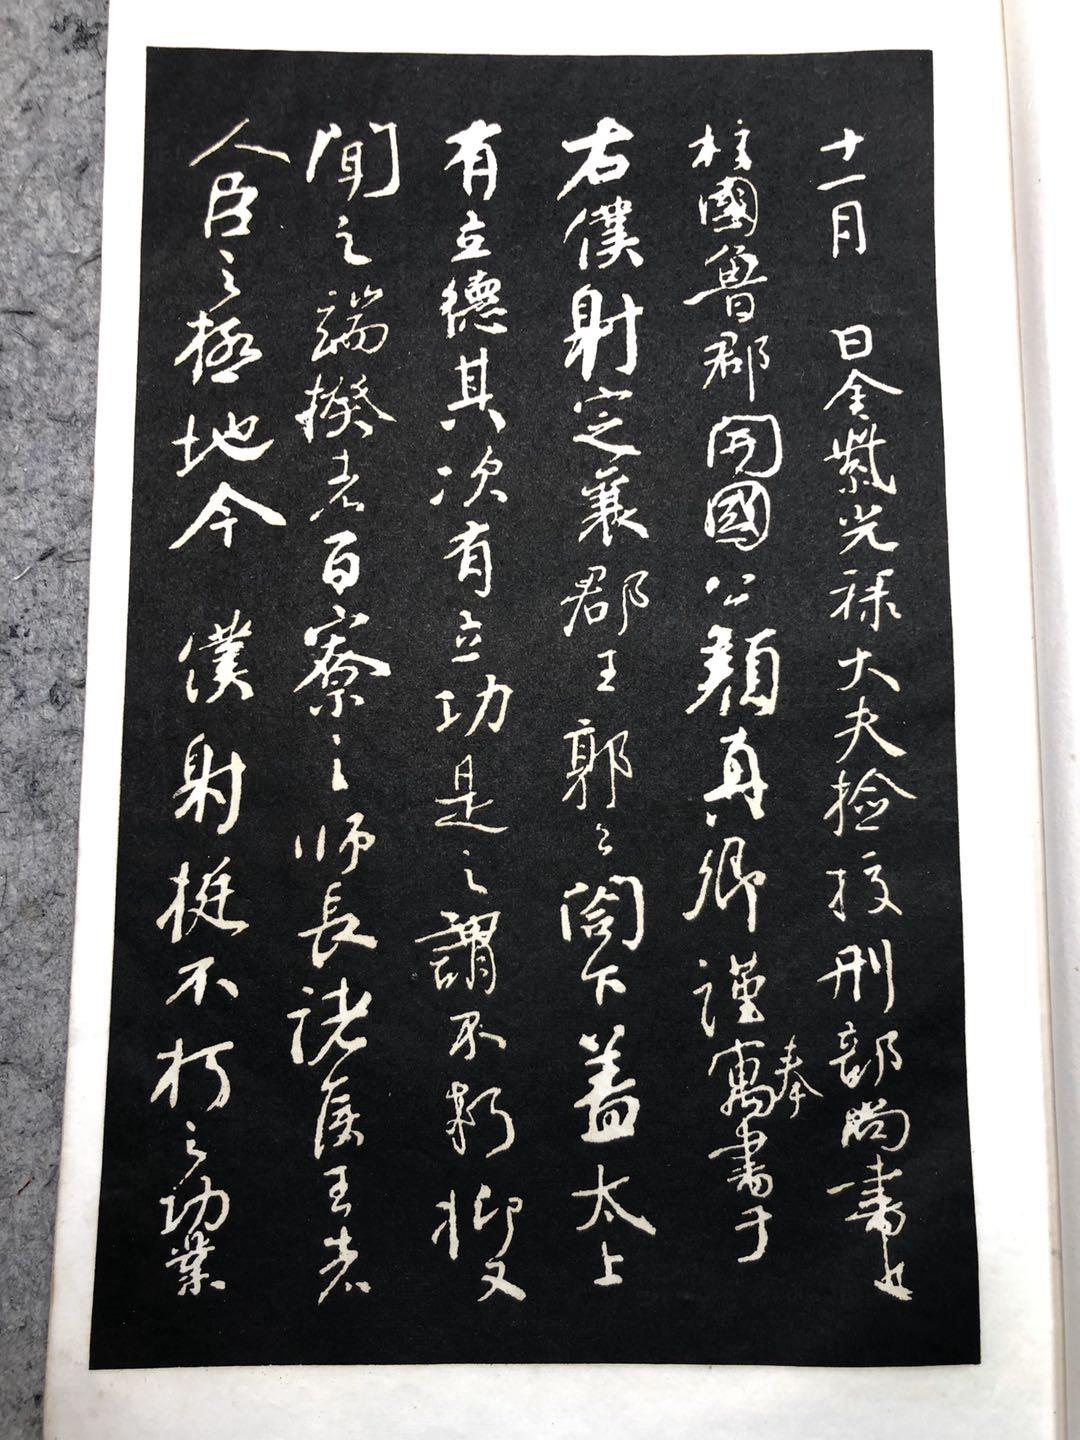 十一月　日金紫光祿大夫撿挍刑部尚書上
柱國魯郡開國公顏真卿謹奉寓書于
右僕射定襄郡王郭公閤下蓋太上
有立德其次有立功是之謂不朽抑又
聞之端揆者百寮之師長諸侯王者
人臣之極地今　僕射挺不朽之功業